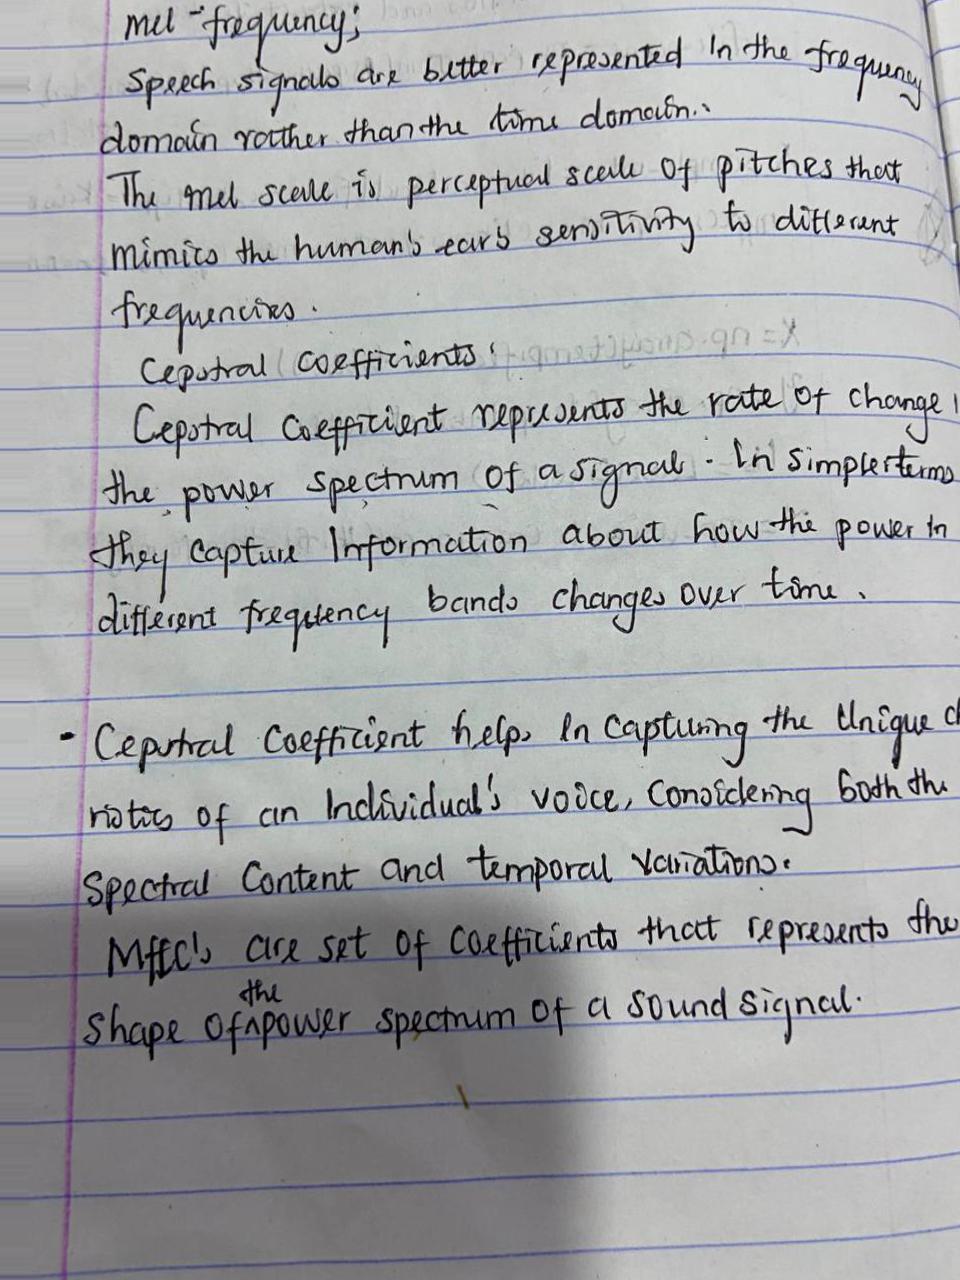 mel-frequency;
Speech signals are better represented in the frequency
domain rather than the time domain.
The mel scale is perceptual scale of pitches that
mimics the human's ear's sensitivity to different
frequencies.
Cepstral coefficients:
Cepstral coefficient represents the rate of change
the power spectrum of a signal. In simpler terms
they capture information about how the power in
different frequency bands changes over time.
• Cepstral coefficient helps in capturing the unique ch
ristics of an individual's voice, considering both the
spectral content and temporal variations.
Mfcc's are set of coefficients that represents the
the
shape of^power spectrum of a sound signal.